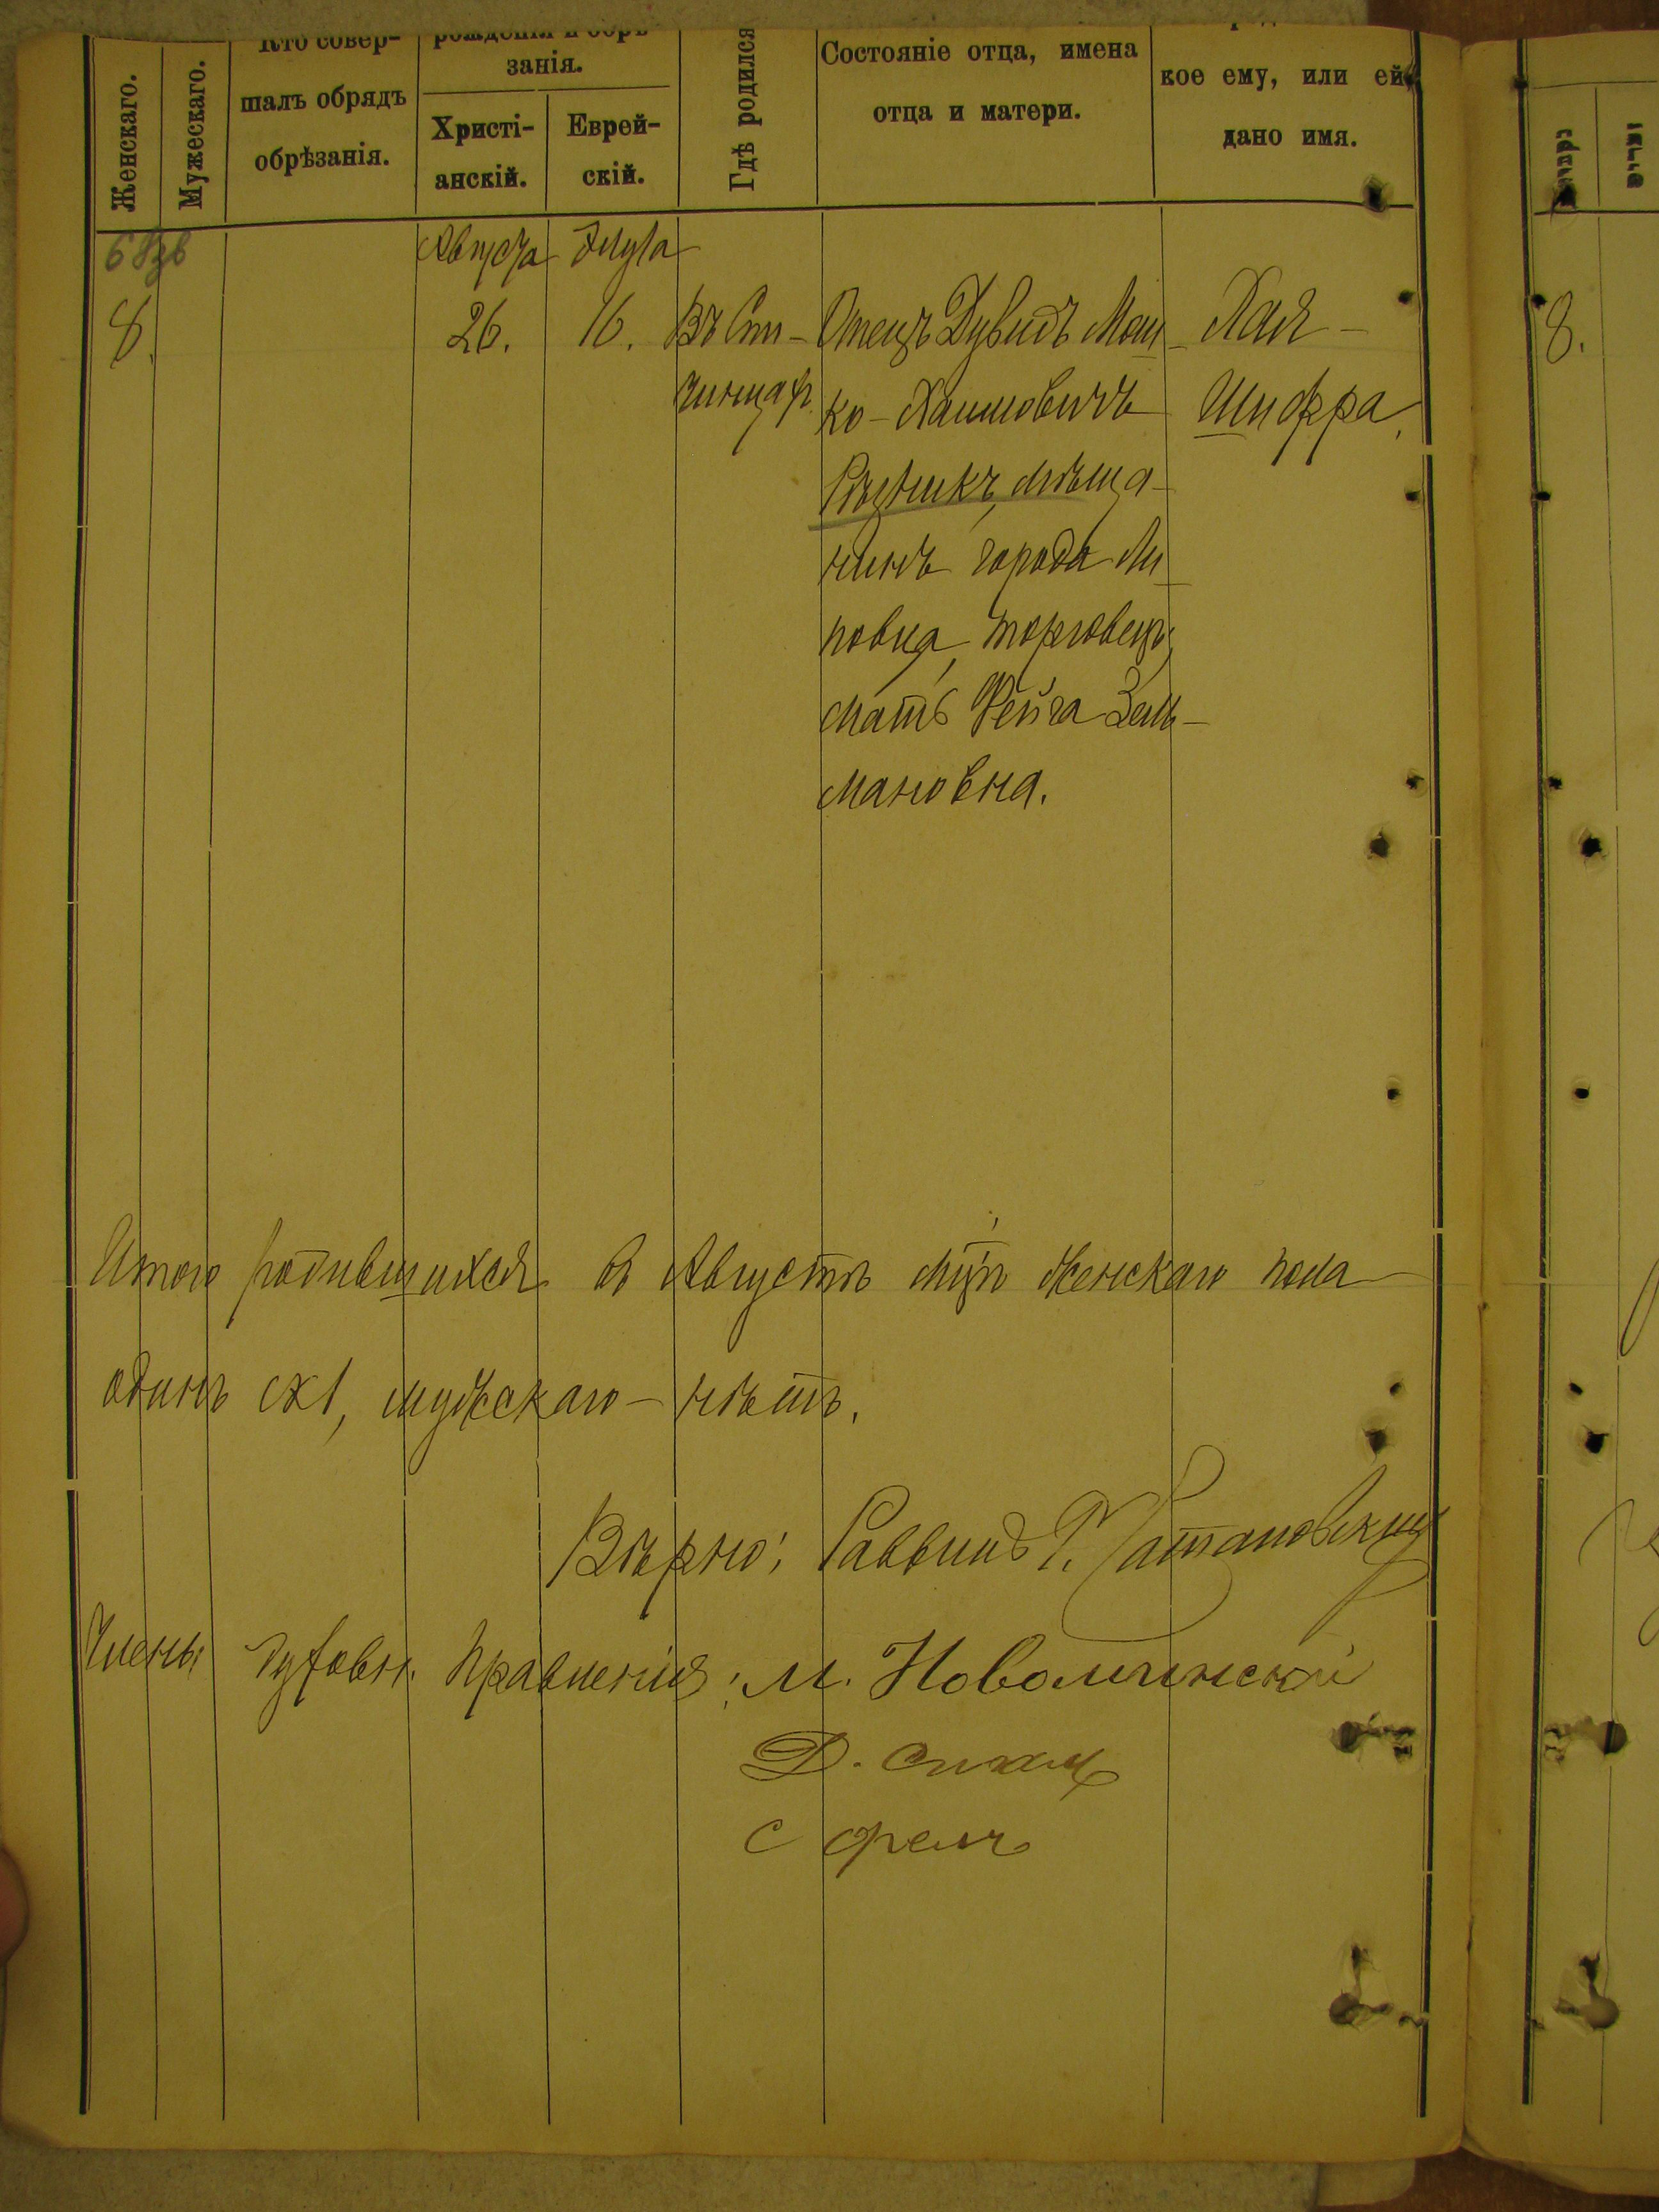 Женскаго.
Мужескаго.
Кто совер-
шалъ обрядъ
обрѣзанія.
рожденія и обрѣ-
занія.
Христі-
анскій.
Еврей-
скій.
Гдѣ родился
Состояніе отца, имена
отца и матери.
кое ему, или ей
дано имя.
Августа
Элула
8.
26.
16.
Въ Ст-
Отецъ Дувидъ Мош-
ко-Хаимовичъ
Рѣзникъ, мѣща-
нинъ города Ли-
повца, торговецъ;
мать Фейга Зель-
мановна.
Хая-
Шифра.
Итого родившихся въ Августѣ мцѣ женскаго пола
одинъ 1, мужскаго - нѣтъ.
Вѣрно: Раввинъ
Члены духовн. Правленія: М.
Д.
С
8.